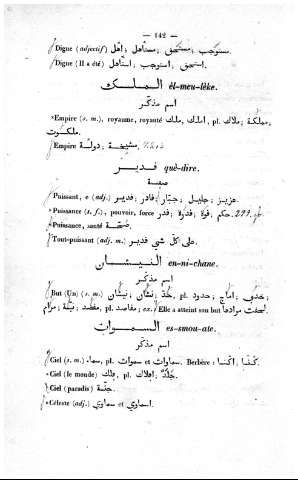 — 142 —
Digne (adjectif) مستوجب ; مستحق ; مستاهل ; اهل.
Digne (Il a été) استحق ; استوجب ; استاهل.
الملك èl-meu-lèke.
اسم مذكر
*Empire (s. m.), royaume, royauté ملك ; املك, pl. ملاك ; مملكة ;
ملكوت.
Empire دولة ; مشيخة.
قدير què-dire.
صفة
Puissant, e (adj.) قدير ; قادر ; جبار ; جليل ; عزيز.
*Puissance (s. f.), pouvoir, force قدر ; قدرة ; قوة ; حكم.
*Puissance, santé صحة.
Tout-puissant (adj. m.) على كل شي قدير.
النيشان en-ni-chane.
اسم مذكر
But (Un) (s. m.) نيشان ; نشان ; حد, pl. حدود ; اماج ;
مرام ; نية ; مقصد, pl. مقاصد ; ex.: Elle a atteint son but لحقت مرادها.
السموات es-smou-ate.
اسم مذكر
Ciel (s. m.) سماء, pl. سموات et سماوات. Berbère:
*Ciel (le monde) فلك, pl. افلاك ;
Ciel (paradis) جنة.
*Céleste (adj.) سماوي et اسماوي.